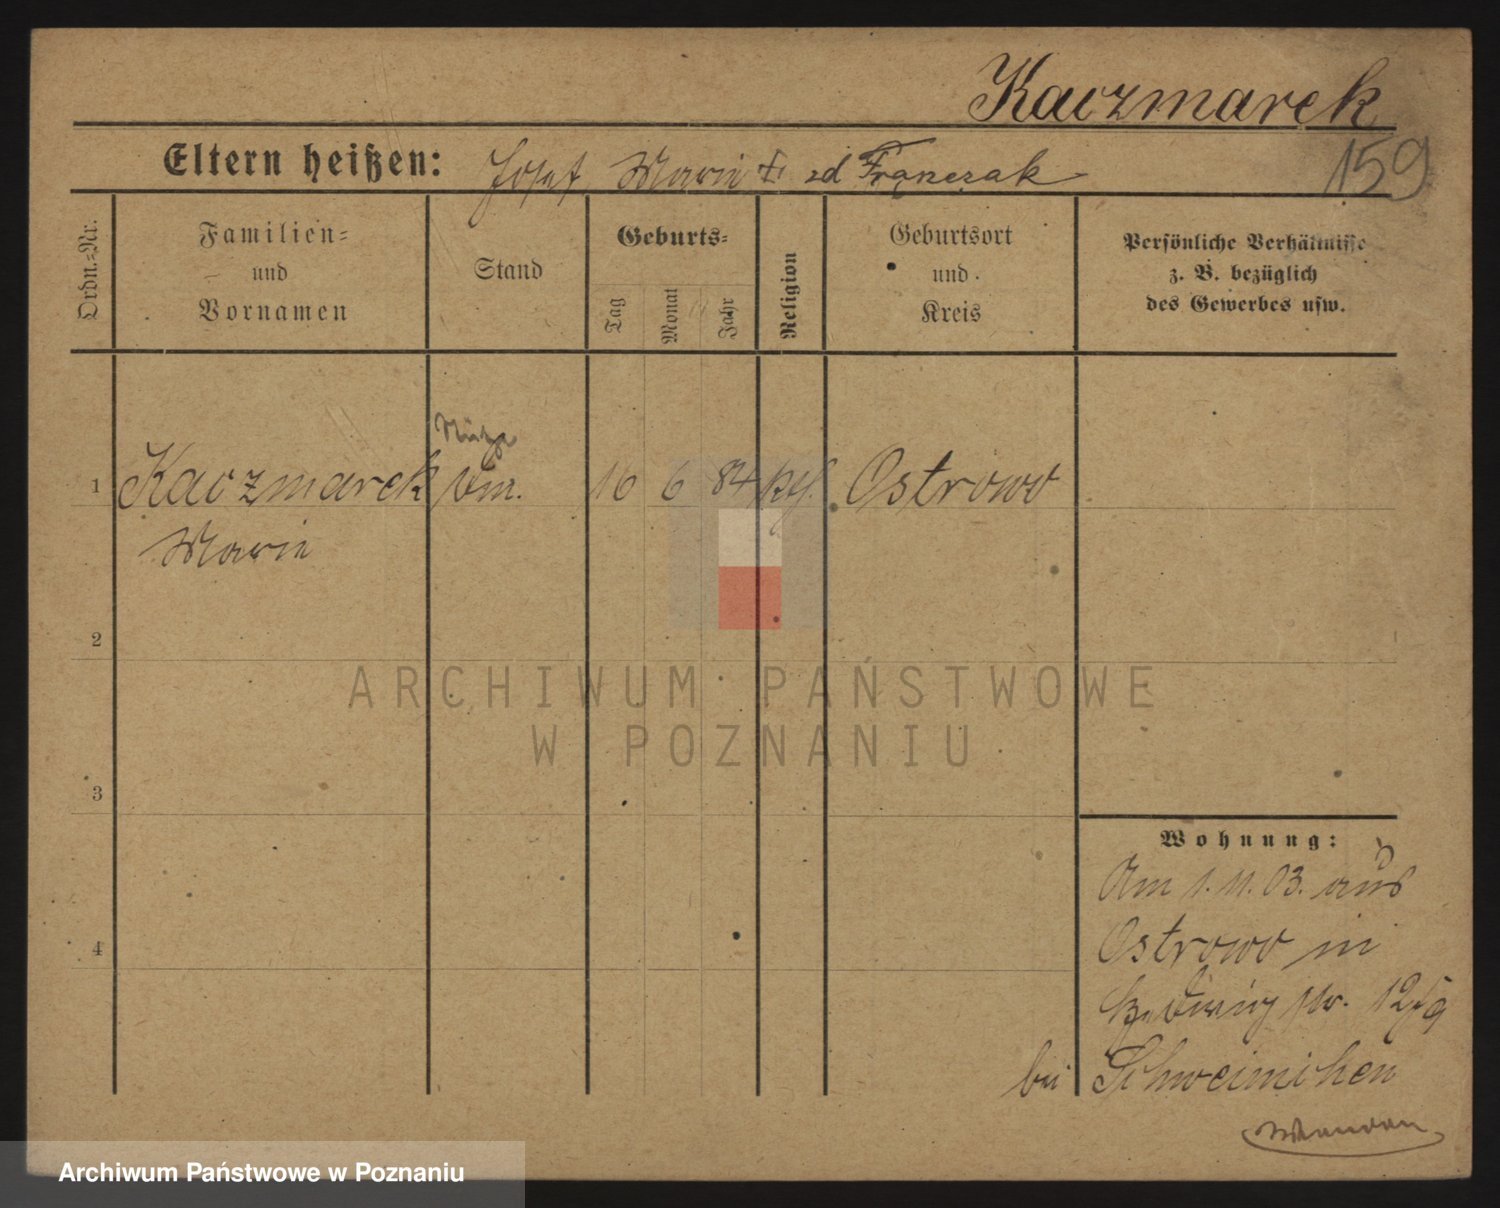 Kaczmarek
Eltern heißen: Josef, Marie zd Franczak
159
Ordn.-Nr.
Familien-
und
Vornamen
Stand
Geburts-
Tag
Monat
Jahr
Religion
Geburtsort
und
Kreis
Persönliche Verhältnisse
z. B. bezüglich
des Gewerbes usw.
1 Kaczmarek 16 6 84 kth. Ostrowo
Marie
2
3
4
Wohnung:
Am 1.11.03. aus
Ostrowo in
str. 12
bei Schweinichen
ARCHIWUM PAŃSTWOWE
W POZNANIU
Archiwum Państwowe w Poznaniu